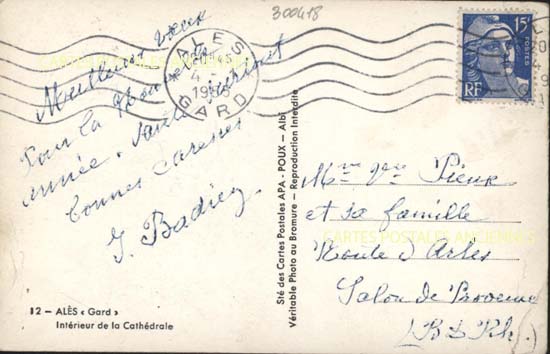 300418
Meilleurs vœux
pour la Nouvelle
année. Santé
bonnes caresses
J. Badiey
ALES
4
GARD
15F
POSTES
RF
Sté des Cartes Postales APA - POUX - Albi
Véritable Photo au Bromure - Reproduction Interdite
Mme Vve
et sa famille
Route d'Arles
Salon de Provence
(B d Rh.)
CARTES POSTALES ANCIENNES
12 — ALÈS « Gard »
Intérieur de la Cathédrale